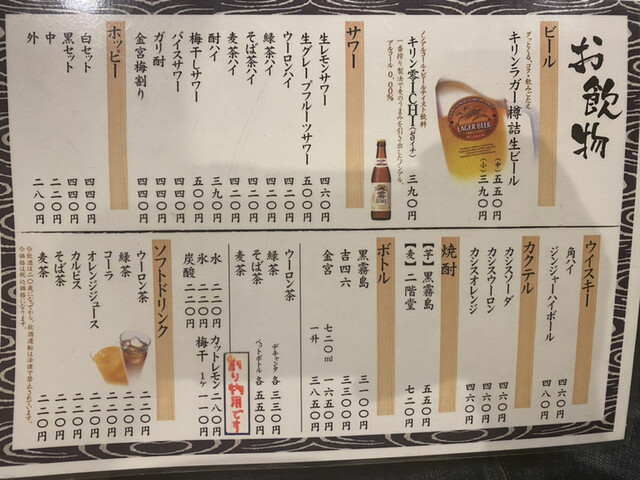 お飲物
ビール
グッとくる、コク・飲みごたえ
キリンラガー樽詰生ビール
(中)五五〇円
(小)三九〇円
LAGER BEER
ノンアルコール・ビールテイスト飲料
キリン零ICHI(ゼロイチ) 三九〇円
一番搾り製法で麦のうまみを引き出したノンアル。
アルコール0.00%
サワー
生レモンサワー 四六〇円
生グレープフルーツサワー 五〇〇円
ウーロンハイ 四二〇円
緑茶ハイ 四二〇円
そば茶ハイ 四二〇円
麦茶ハイ 四二〇円
酎ハイ 三九〇円
梅干しサワー 五〇〇円
バイスサワー 四四〇円
ガリ酎 四四〇円
金宮梅割り 四四〇円
ホッピー
白セット 四四〇円
黒セット 四四〇円
中 二二〇円
外 二八〇円
ウイスキー
角ハイ 四六〇円
ジンジャーハイボール 四八〇円
カクテル
カシスソーダ 四六〇円
カシスウーロン 四六〇円
カシスオレンジ 四六〇円
焼酎
【芋】黒霧島 五五〇円
【麦】二階堂 七二〇円
ボトル
黒霧島 三一〇〇円
吉四六 三三〇〇円
金宮 七二〇ml 一六五〇円
一升 三八五〇円
ウーロン茶
緑茶
そば茶
麦茶
デキャンタ 各三三〇円
ペットボトル 各五五〇円
割り物用です
水 二二〇円
氷 二二〇円
炭酸 二二〇円
カットレモン 二八〇円
梅干 1ケ 一一〇円
ソフトドリンク
ウーロン茶 二二〇円
緑茶 二二〇円
コーラ 二二〇円
オレンジジュース 二二〇円
カルピス 二二〇円
そば茶 二二〇円
麦茶 二二〇円
※飲酒は二〇歳になってから。飲酒運転は法律で禁止されています。
※価格は税込価格になります。